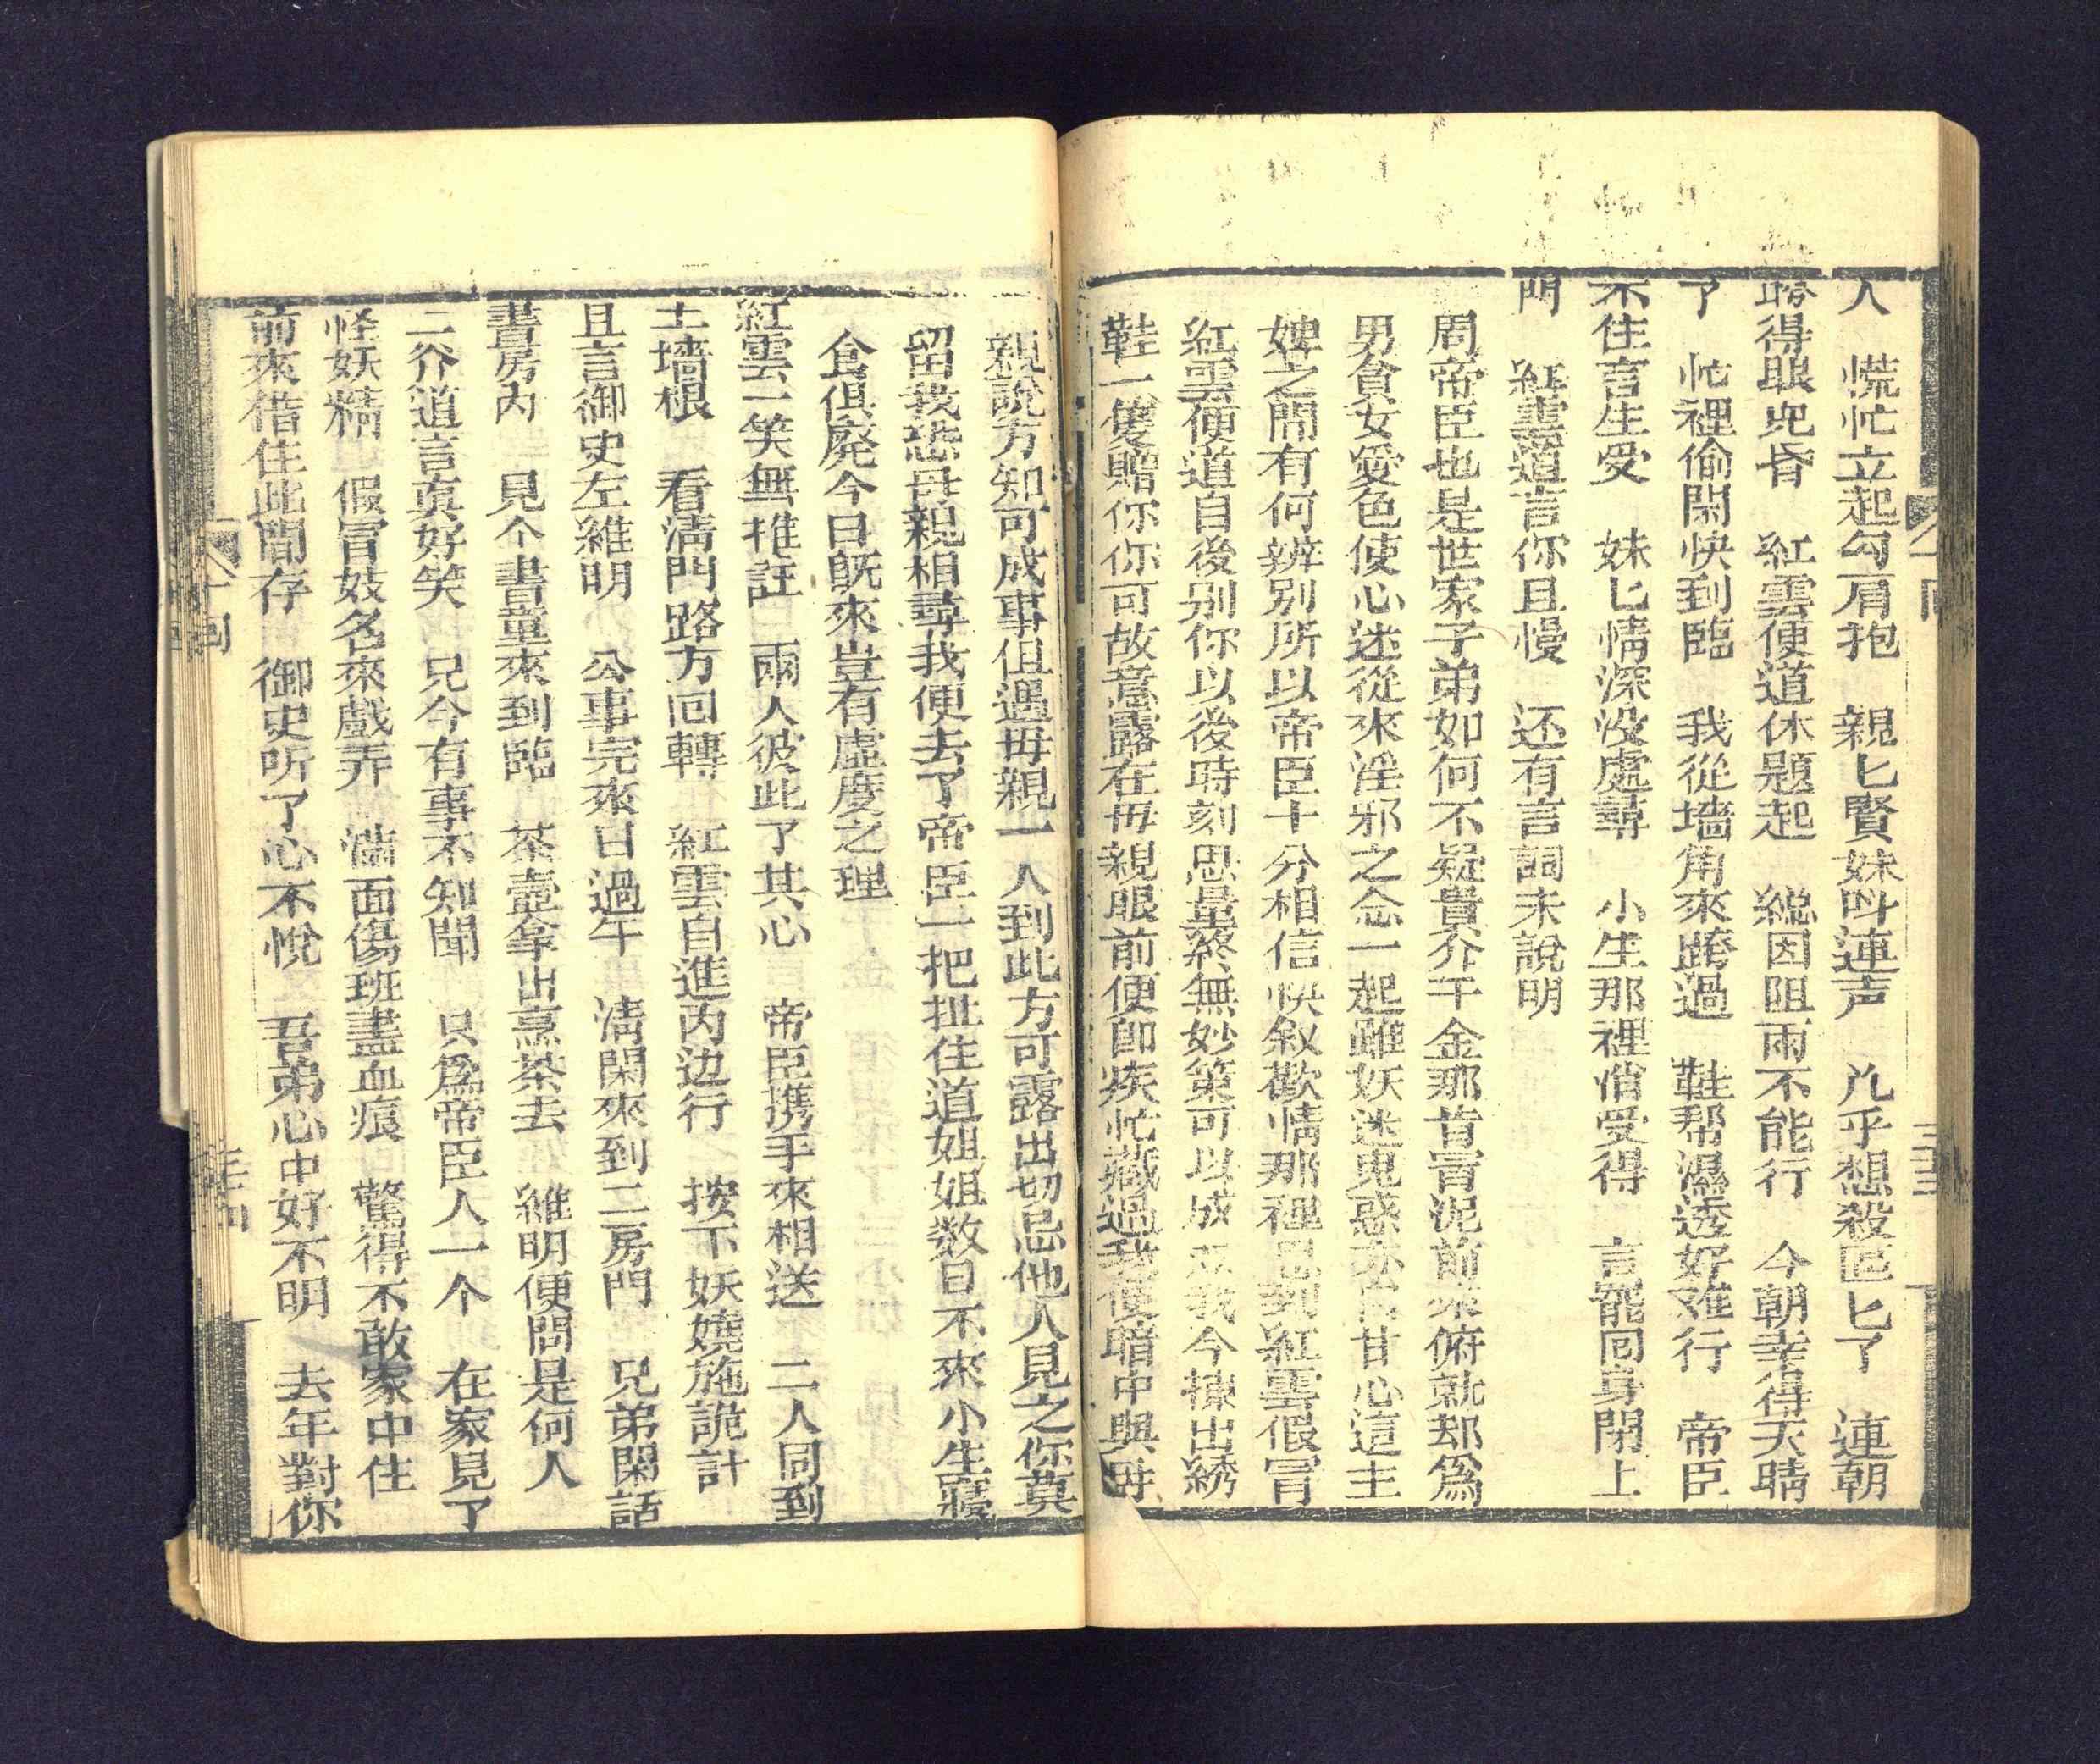 人　慌忙立起勾肩抱　親匕賢妹呌連声　凢乎想殺匠匕了　連朝
得眼兜昏　紅雲便道休題起　總因阻雨不能行　今朝幸得天晴
了　忙裡偷閑快到臨　我從墻角來跨過　鞋帮濕透好难行　帝臣
不住言生受　妹匕情深没處尋　小生那裡消受得　言罷囘身閉上
門　紅雲道言你且慢　还有言詞未說明
周帝臣也是世家子弟如何不疑貴介千金那肯冐泥前來俯就却爲
男貪女愛色使心迷從來淫邪之念一起雖妖迷鬼惑亦皆甘心這主
婢之間有何辨别所以帝臣十分相信快叙歡情那裡思到紅雲假冐
紅雲便道自後别你以後時刻思量終無妙策可以成 我今 出綉
鞋一隻贈你你可故意露在毋親眼前便卽疾忙藏過我便暗中與毋
親說方知可成事但遇毋親一人到此方可露出切忌他人見之你莫
留我恐毋親相尋我便去了帝臣一把扯住道姐姐数日不來小生寢
食俱廢今日旣來豈有虛度之理
紅雲一笑無推託　兩人彼此了其心　帝臣携手來相送　二人同到
土墻根　看淸門路方回轉　紅雲自進内边行　按下妖嬈施詭計
且言御史左維明　公事完來日過午　淸閑來到二房門　兄弟閑話
書房內　見个書童來到臨　茶壺拿出烹茶去　維明便問是何人
二介道言眞好笑　兄今有事不知聞　只爲帝臣人一个　在家見了
怪妖精　假冐妓名來戲弄　滿面傷班盡血痕　驚得不敢家中住
前來借住此間存　御史听了心不悅　吾弟心中好不明　去年對你